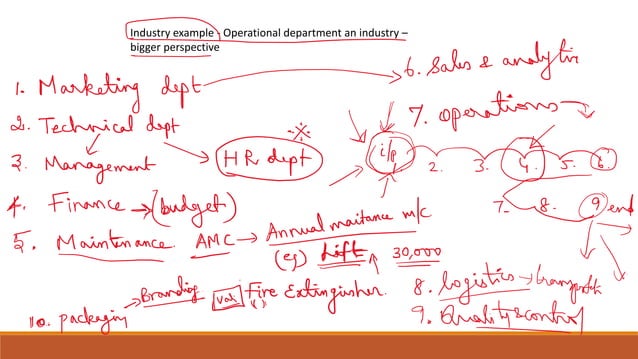 Industry example - Operational department an industry –
bigger perspective
1. Marketing dept
2. Technical dept
HR dept
3. Management
4. Finance → (budget)
5. Maintenance. AMC → Annual maitance m/c
(eg) Lift 30,000
Fire Extinguisher.
Branding
10. packaging
6. Sales & analytic
7. Operations
i/p 2. 3. 4. 5. 6
7. 8. 9 end
8. Logistics →
9. Quality & control